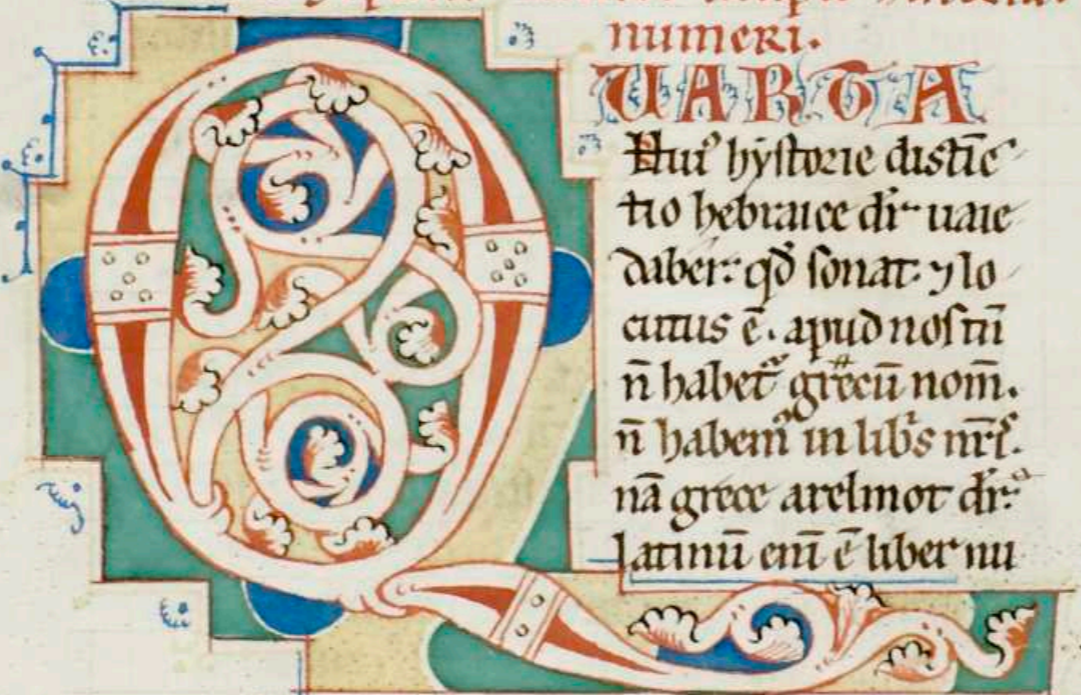 numeri.
QUARTA
Huiꝰ hystorie distīc
tio hebraice dr̄ uaie
daber: qd̄ sonat ⁊ lo
cutus ē. apud nostm̄
n̄ habet᷑ grecū nom̄.
n̄ habemꝰ in libris nr̄is.
nā grece arelmot dr̄:
latinū enī ē liber nu